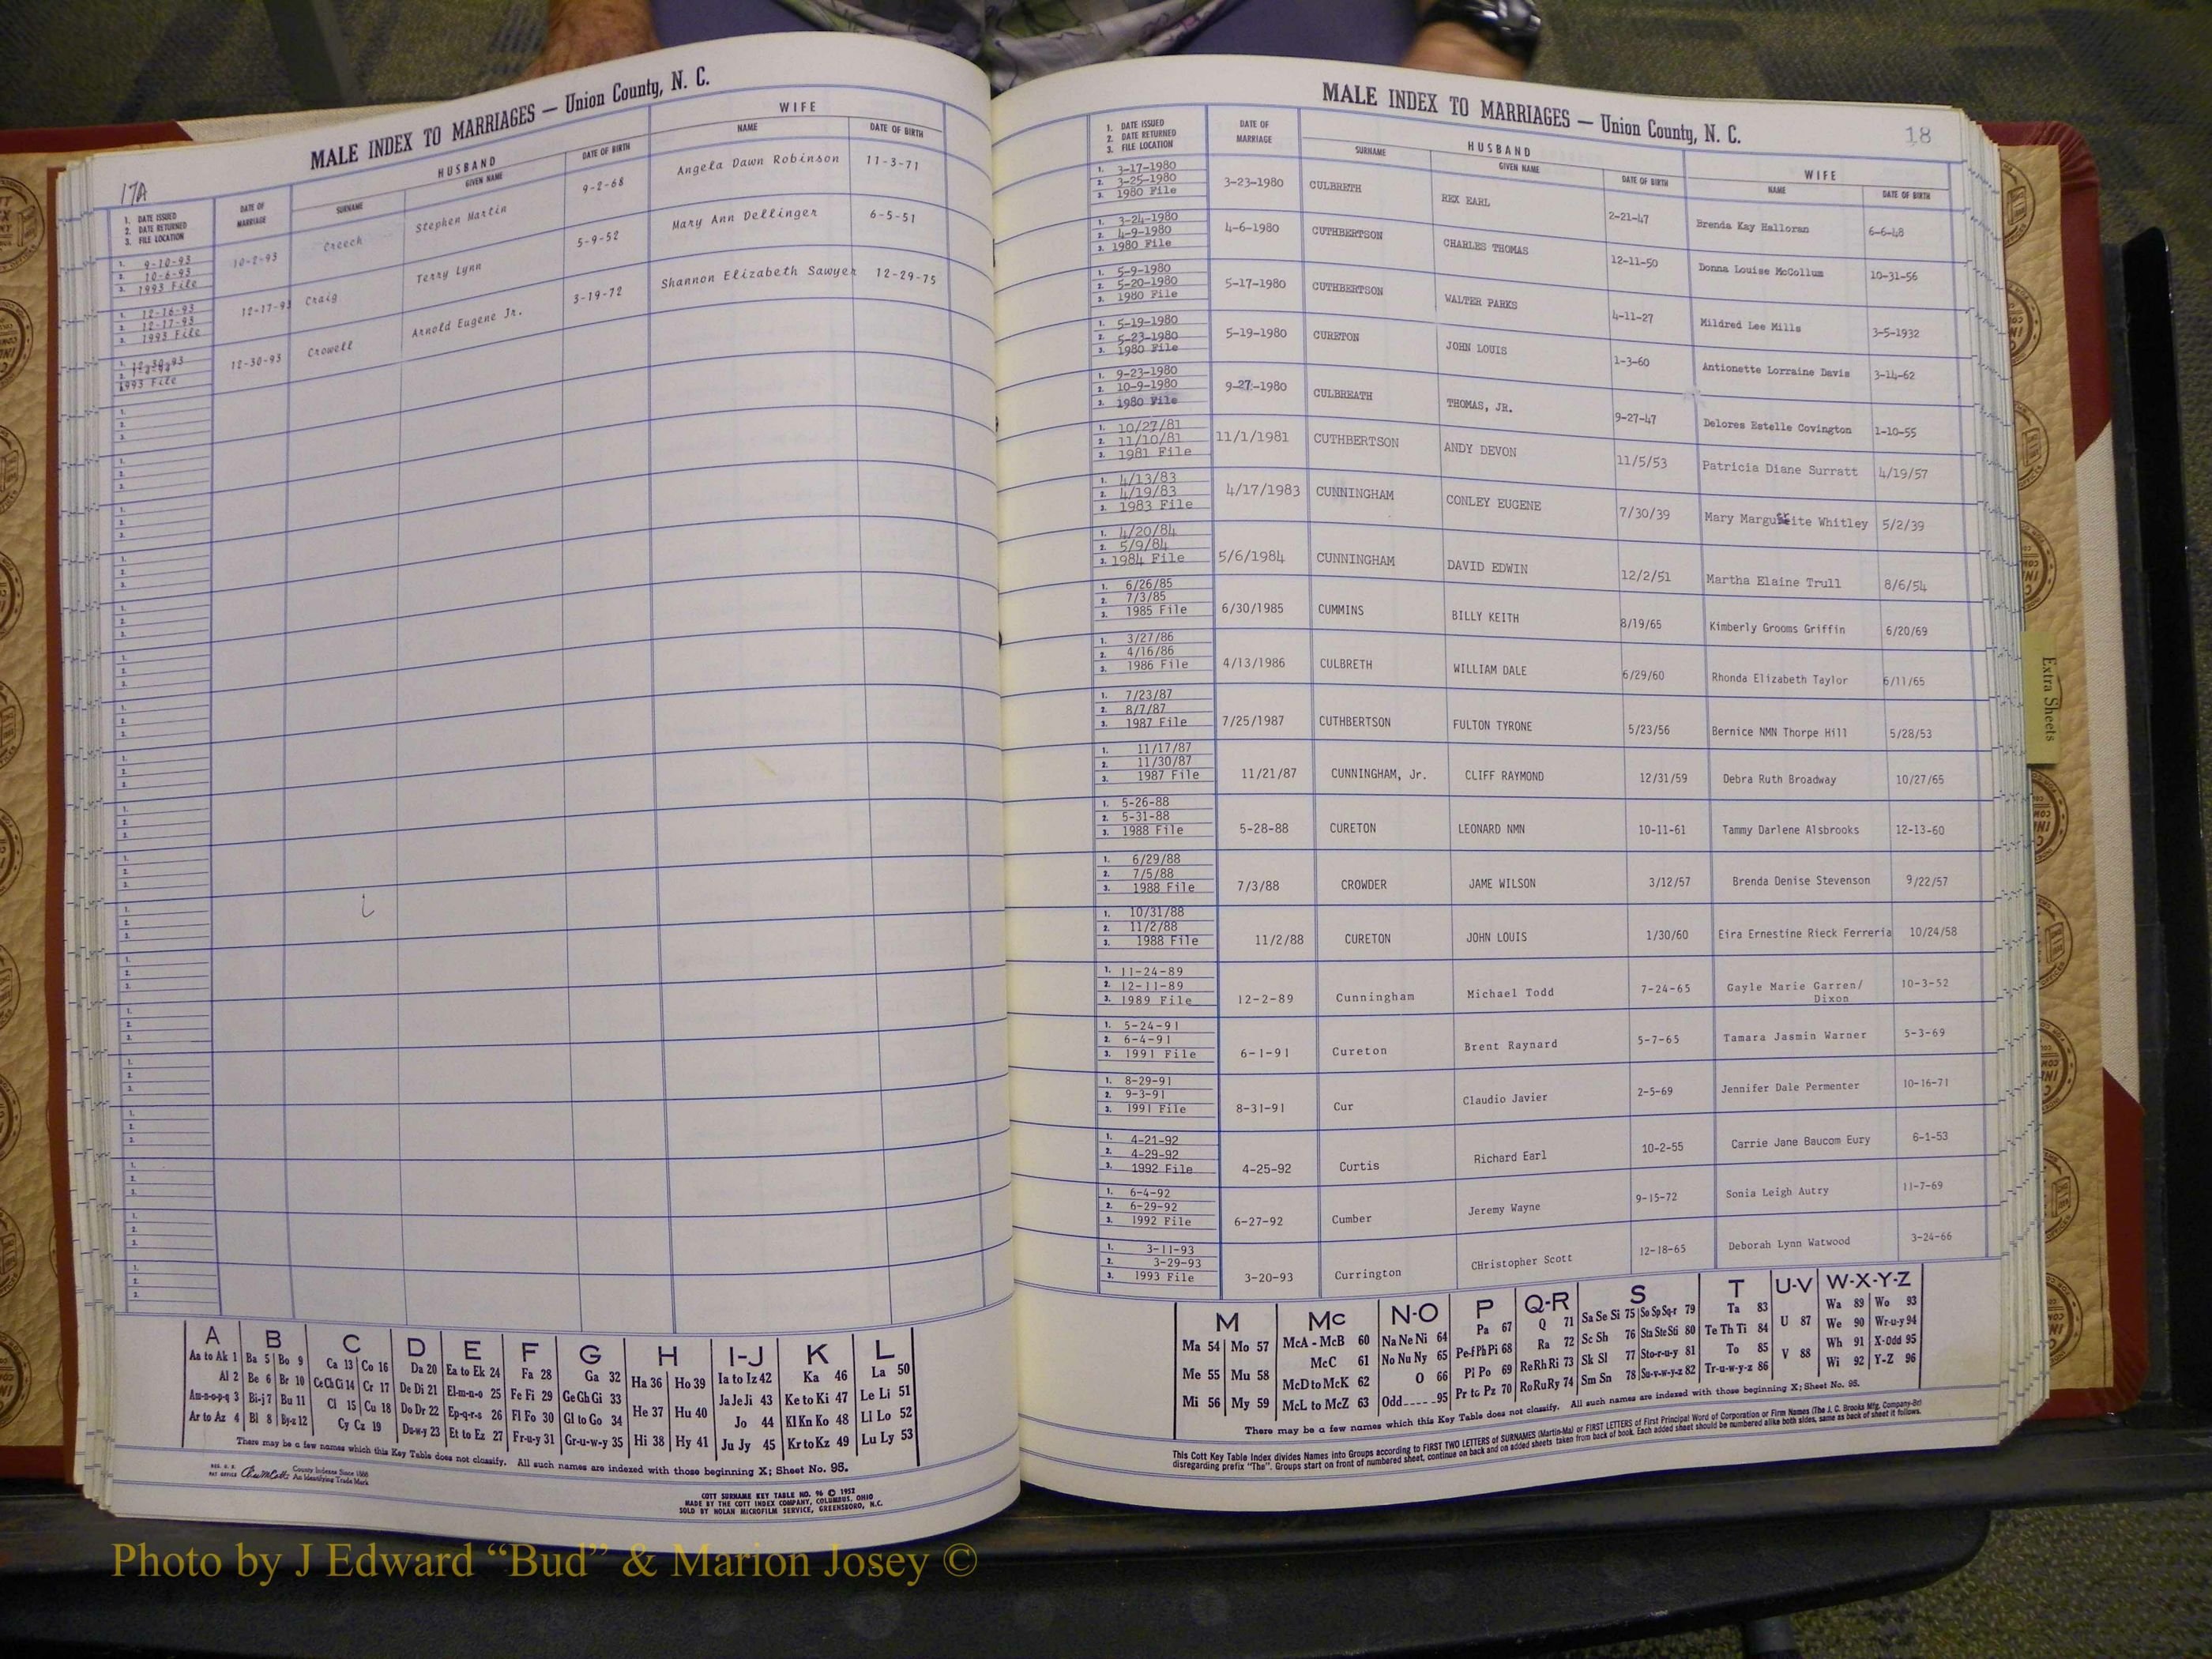 17A
MALE INDEX TO MARRIAGES — Union County, N. C.
1. DATE ISSUED
2. DATE RETURNED
3. FILE LOCATION
DATE OF MARRIAGE
HUSBAND
SURNAME
GIVEN NAME
DATE OF BIRTH
WIFE
NAME
DATE OF BIRTH
1. 9-10-93
2. 10-6-93
3. 1993 File
10-2-93 Creech Stephen Martin 9-2-68 Angela Dawn Robinson 11-3-71
1. 12-16-93
2. 12-17-93
3. 1993 File
12-17-93 Craig Terry Lynn 5-9-52 Mary Ann Dellinger 6-5-51
1. 12-30-93
1993 File
12-30-93 Crowell Arnold Eugene Jr. 3-19-72 Shannon Elizabeth Sawyer 12-29-75
A
Aa to Ak 1
Al 2
Am-n-o-p-q 3
Ar to Az 4
B
Ba 5 Bo 9
Be 6 Br 10
Bi-j 7 Bu 11
Bl 8 By-z 12
C
Ca 13 Co 16
Ce Ch Ci 14 Cr 17
Cl 15 Cu 18
Cy Cz 19
D
Da 20
De Di 21
Do Dr 22
Du-w-y 23
E
Ea to Ek 24
El-m-n-o 25
Ep-q-r-s 26
Et to Ez 27
F
Fa 28
Fe Fi 29
Fl Fo 30
Fr-u-y 31
G
Ga 32
Ge Gh Gi 33
Gl to Go 34
Gr-u-w-y 35
H
Ha 36 Ho 39
He 37 Hu 40
Hi 38 Hy 41
I-J
Ia to Iz 42
Ja Je Ji 43
Jo 44
Ju Jy 45
K
Ka 46
Ke to Ki 47
Kl Kn Ko 48
Kr to Kz 49
L
La 50
Le Li 51
Ll Lo 52
Lu Ly 53
There may be a few names which this Key Table does not classify. All such names are indexed with those beginning X; Sheet No. 95.
County Indexes Since 1888
An Identifying Trade Mark
COTT SURNAME KEY TABLE NO. 96 © 1952
MADE BY THE COTT INDEX COMPANY, COLUMBUS, OHIO
SOLD BY NOLAN MICROFILM SERVICE, GREENSBORO, N.C.
MALE INDEX TO MARRIAGES — Union County, N. C.
18
1. DATE ISSUED
2. DATE RETURNED
3. FILE LOCATION
DATE OF MARRIAGE
HUSBAND
SURNAME
GIVEN NAME
DATE OF BIRTH
WIFE
NAME
DATE OF BIRTH
1. 3-17-1980
2. 3-25-1980
3. 1980 File
3-23-1980 CULBRETH REX EARL 2-21-47 Brenda Kay Halloran 6-6-48
1. 3-24-1980
2. 4-9-1980
3. 1980 File
4-6-1980 CUTHBERTSON CHARLES THOMAS 12-11-50 Donna Louise McCollum 10-31-56
1. 5-9-1980
2. 5-20-1980
3. 1980 File
5-17-1980 CUTHBERTSON WALTER PARKS 4-11-27 Mildred Lee Mills 3-5-1932
1. 5-19-1980
2. 5-23-1980
3. 1980 File
5-19-1980 CURETON JOHN LOUIS 1-3-60 Antionette Lorraine Davis 3-14-62
1. 9-23-1980
2. 10-9-1980
3. 1980 File
9-27-1980 CULBREATH THOMAS, JR. 9-27-47 Delores Estelle Covington 1-10-55
1. 10/27/81
2. 11/10/81
3. 1981 File
11/1/1981 CUTHBERTSON ANDY DEVON 11/5/53 Patricia Diane Surratt 4/19/57
1. 4/13/83
2. 4/19/83
3. 1983 File
4/17/1983 CUNNINGHAM CONLEY EUGENE 7/30/39 Mary Marguerite Whitley 5/2/39
1. 4/20/84
2. 5/9/84
3. 1984 File
5/6/1984 CUNNINGHAM DAVID EDWIN 12/2/51 Martha Elaine Trull 8/6/54
1. 6/26/85
2. 7/3/85
3. 1985 File
6/30/1985 CUMMINS BILLY KEITH 8/19/65 Kimberly Grooms Griffin 6/20/69
1. 3/27/86
2. 4/16/86
3. 1986 File
4/13/1986 CULBRETH WILLIAM DALE 6/29/60 Rhonda Elizabeth Taylor 6/11/65
1. 7/23/87
2. 8/7/87
3. 1987 File
7/25/1987 CUTHBERTSON FULTON TYRONE 5/23/56 Bernice NMN Thorpe Hill 5/28/53
1. 11/17/87
2. 11/30/87
3. 1987 File
11/21/87 CUNNINGHAM, Jr. CLIFF RAYMOND 12/31/59 Debra Ruth Broadway 10/27/65
1. 5-26-88
2. 5-31-88
3. 1988 File
5-28-88 CURETON LEONARD NMN 10-11-61 Tammy Darlene Alsbrooks 12-13-60
1. 6/29/88
2. 7/5/88
3. 1988 File
7/3/88 CROWDER JAME WILSON 3/12/57 Brenda Denise Stevenson 9/22/57
1. 10/31/88
2. 11/2/88
3. 1988 File
11/2/88 CURETON JOHN LOUIS 1/30/60 Eira Ernestine Rieck Ferreria 10/24/58
1. 11-24-89
2. 12-11-89
3. 1989 File
12-2-89 Cunningham Michael Todd 7-24-65 Gayle Marie Garren/ 10-3-52
Dixon
1. 5-24-91
2. 6-4-91
3. 1991 File
6-1-91 Cureton Brent Raynard 5-7-65 Tamara Jasmin Warner 5-3-69
1. 8-29-91
2. 9-3-91
3. 1991 File
8-31-91 Cur Claudio Javier 2-5-69 Jennifer Dale Permenter 10-16-71
1. 4-21-92
2. 4-29-92
3. 1992 File
4-25-92 Curtis Richard Earl 10-2-55 Carrie Jane Baucom Eury 6-1-53
1. 6-4-92
2. 6-29-92
3. 1992 File
6-27-92 Cumber Jeremy Wayne 9-15-72 Sonia Leigh Autry 11-7-69
1. 3-11-93
2. 3-29-93
3. 1993 File
3-20-93 Currington CHristopher Scott 12-18-65 Deborah Lynn Watwood 3-24-66
M
Ma 54 Mo 57
Me 55 Mu 58
Mi 56 My 59
Mc
McA - McB 60
McC 61
McD to McK 62
McL to McZ 63
N-O
Na Ne Ni 64
No Nu Ny 65
O 66
Odd.....95
P
Pa 67
Pe-f Ph Pi 68
Pl Po 69
Pr to Pz 70
Q-R
Q 71
Ra 72
Re Rh Ri 73
Ro Ru Ry 74
S
Sa Se Si 75 So Sp Sq-r 79
Sc Sh 76 Sta Ste Sti 80
Sk Sl 77 Sto-r-u-y 81
Sm Sn 78 Su-v-w-y-z 82
T
Ta 83
Te Th Ti 84
To 85
Tr-u-w-y-z 86
U-V
U 87
V 88
W-X-Y-Z
Wa 89 Wo 93
We 90 Wr-u-y 94
Wh 91 X-Odd 95
Wi 92 Y-Z 96
There may be a few names which this Key Table does not classify. All such names are indexed with those beginning X; Sheet No. 95.
This Cott Key Table Index divides Names into Groups according to FIRST TWO LETTERS of SURNAMES (Martin-Ma) or FIRST LETTERS of First Principal Word of Corporation or Firm Names (The J. C. Brooks Mfg. Company-Br)
disregarding prefix "The". Groups start on front of numbered sheet, continue on back and on added sheets taken from back of book. Each added sheet should be numbered alike both sides, same as back of sheet it follows.
Extra Sheets
Photo by J Edward “Bud” & Marion Josey ©